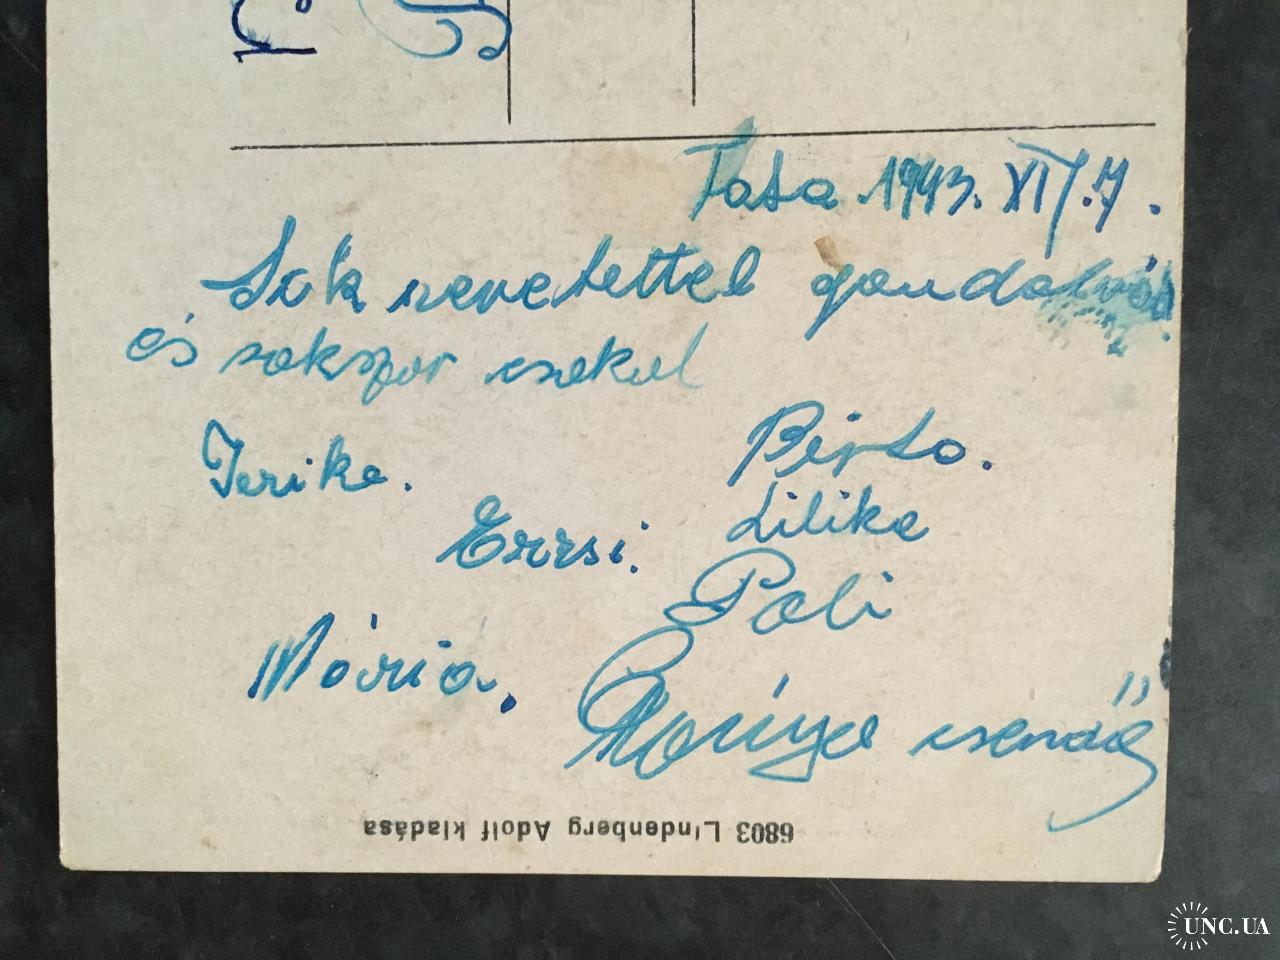 Tata 1943. XII. 7.
Sok szeretettel gondolva
és sokszor csokol
Terike.
Berto.
Errsi.
Lilike
Pali
Mária.
csendő
6803 Lindenberg Adolf kiadása
UNC.UA